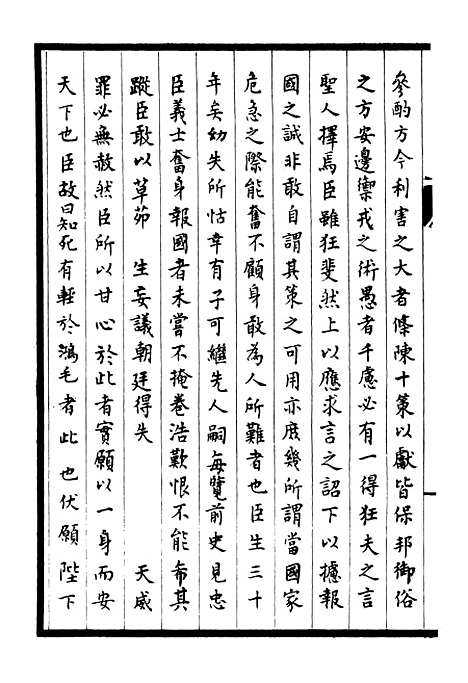 參酌方今利害之大者條陳十策以獻皆保邦御俗
之方安邊禦戎之術愚者千慮必有一得狂夫之言
聖人擇焉臣雖狂斐然上以應求言之詔下以攄報
國之誠非敢自謂其策之可用亦庶幾所謂當國家
危急之際能奮不顧身敢為人所難者也臣生三十
年矣幼失所怙幸有子可繼先人嗣每覽前史見忠
臣義士奮身報國者未嘗不掩卷浩歎恨不能希其
蹤臣敢以草茆 生妄議朝廷得失 天威
罪必無赦然臣所以甘心於此者實願以一身而安
天下也臣故曰知死有輕於鴻毛者此也伏願陛下